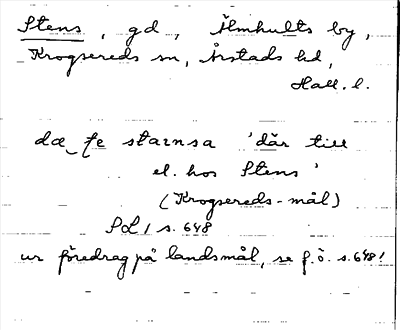 Stens, gd, Älmhults by,
Krogsereds sn, Årstads hd,
Hall. l.
dæ‿te starnsa 'där till
el. hos Stens'
(Krogsereds-mål)
SL 1 s. 648
ur föredrag på landsmål, se f.ö. s. 648!